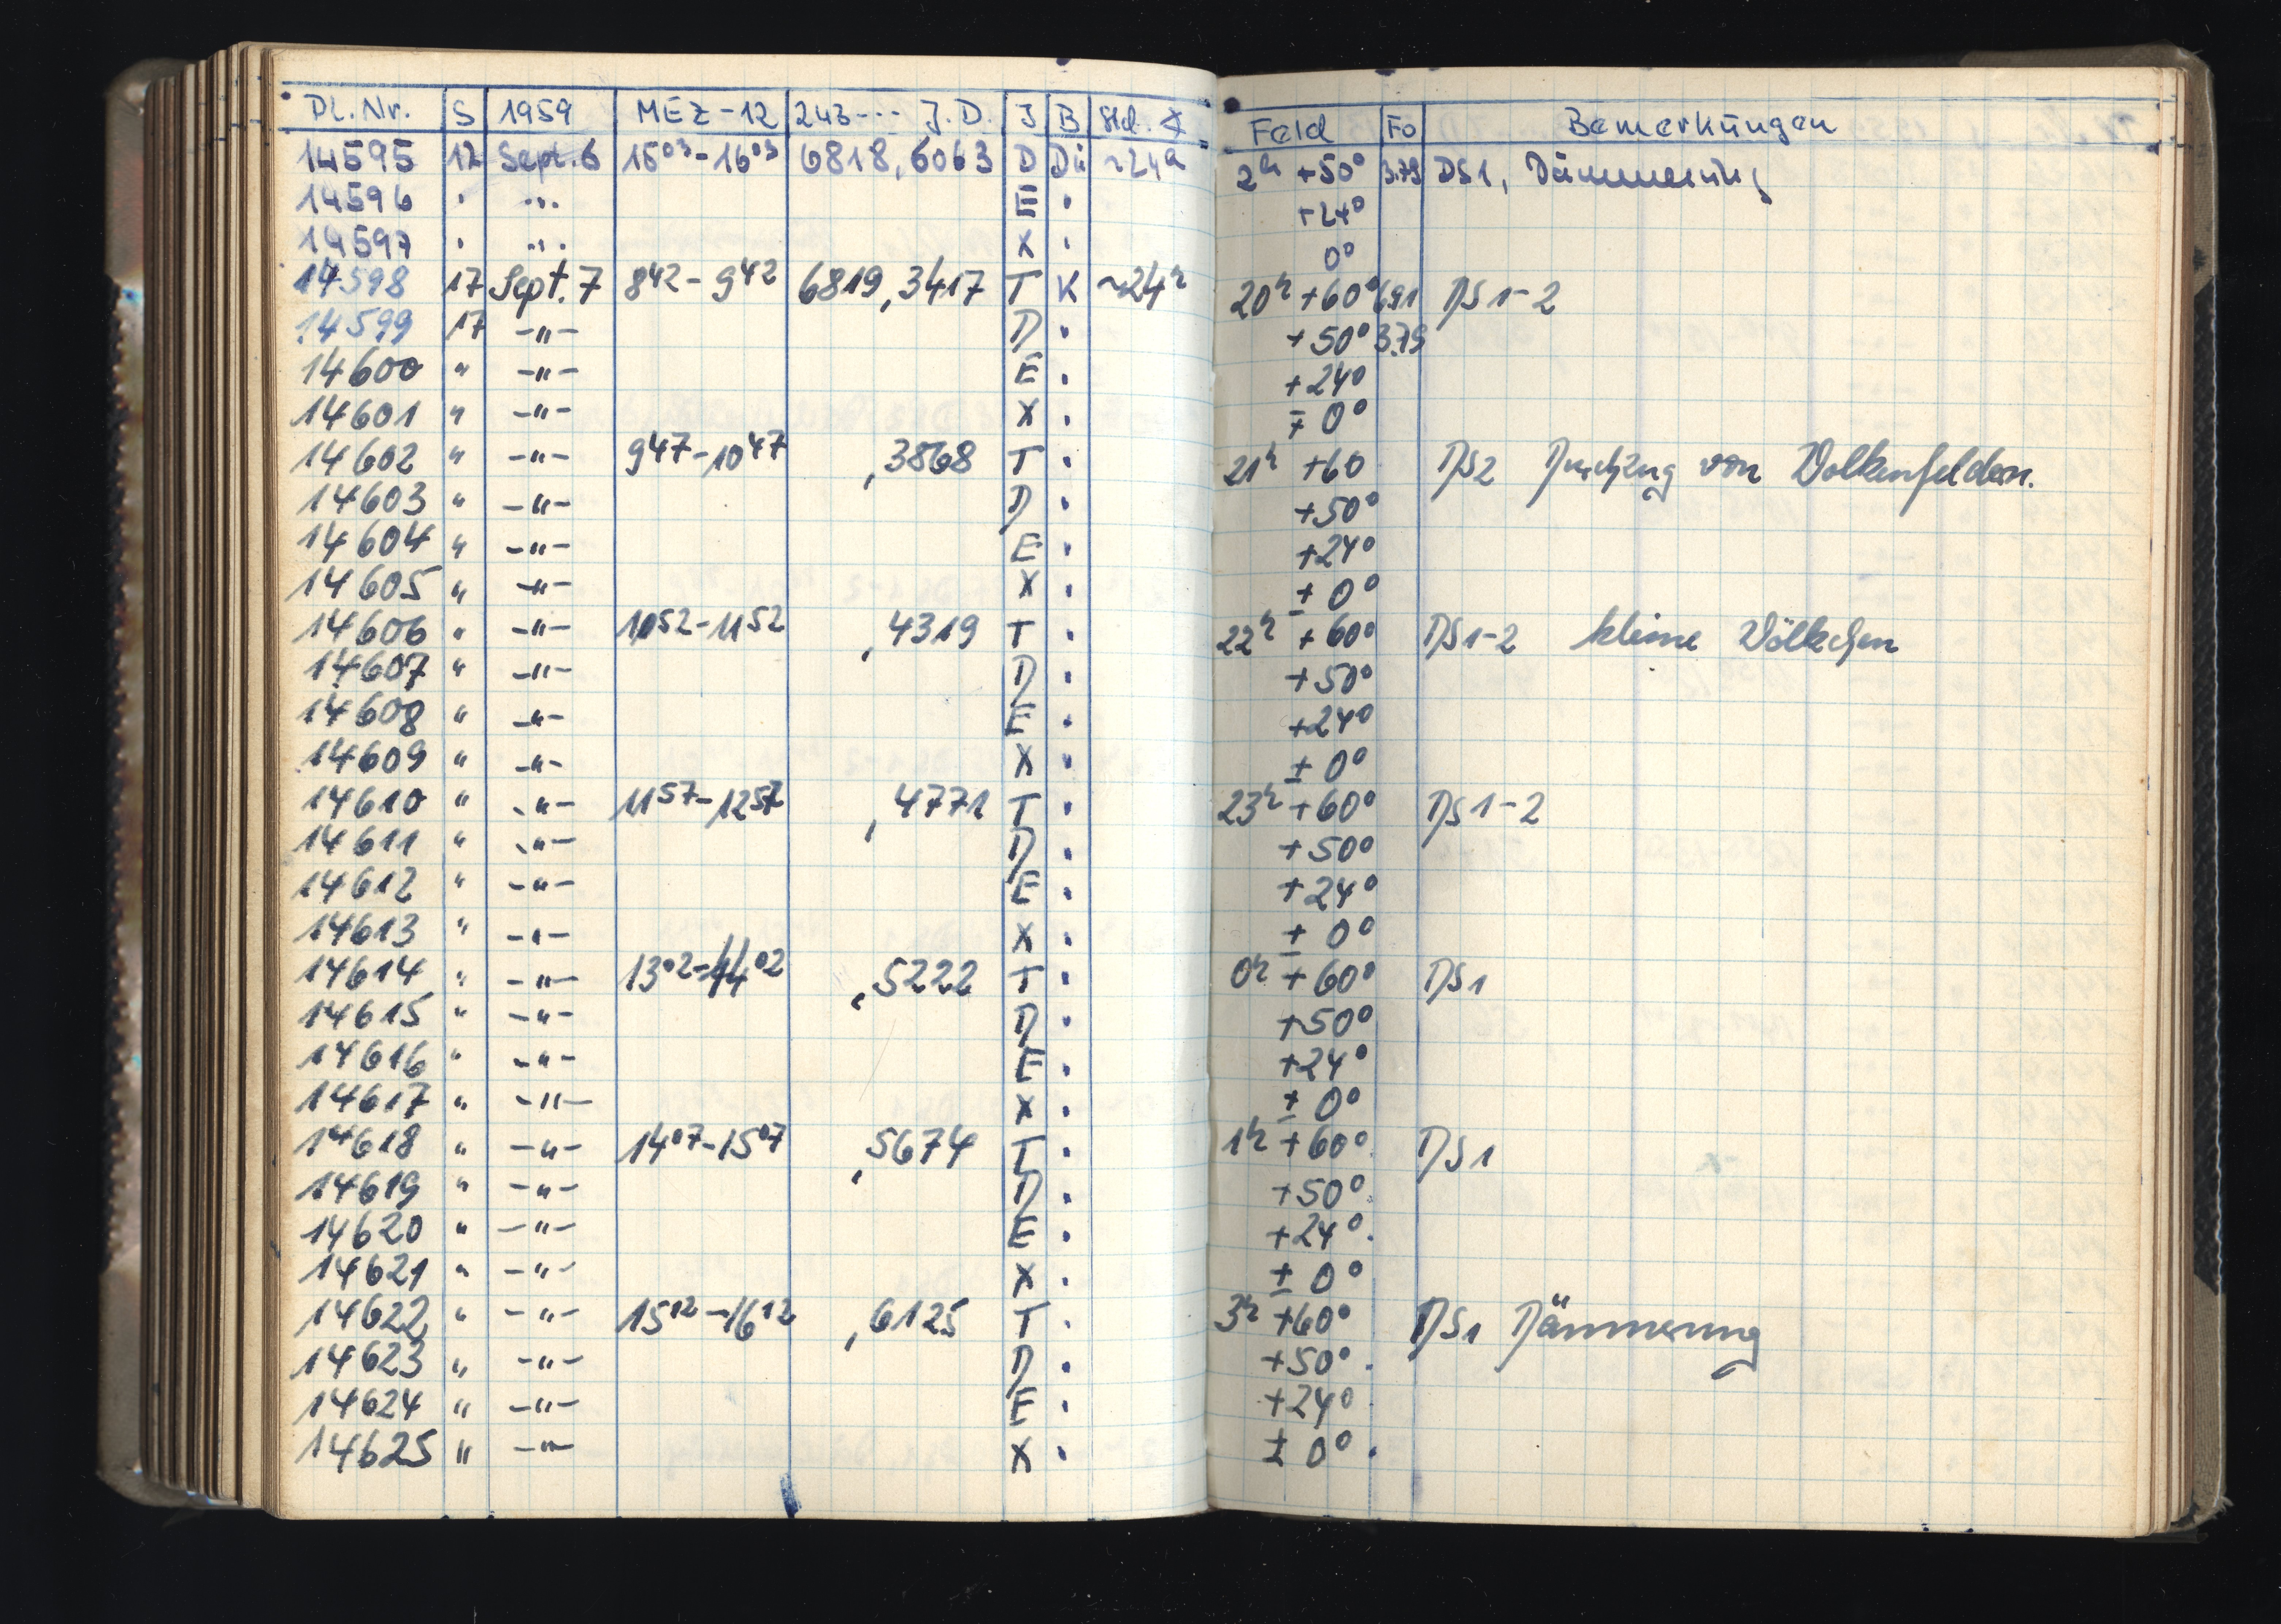 Pl. Nr. S 1959 MEZ-12 243--- J.D. J B Std. Feld Fo Bemerkungen
14595 12 Sept. 6 15⁰³-16⁰³ 6818,6063 D Dü ~24h 2h +50° 3.79 DS1, Dämmerung
14596 . ... E . +24°
14597 . ... X . 0°
14598 17 Sept. 7 8⁴²-9⁴² 6819,3417 T K ~24h 20h +60° 6.91 DS 1-2
14599 17 -"- D . +50° 3.79
14600 " -"- E . +24°
14601 " -"- X . ∓ 0°
14602 " -"- 9⁴⁷-10⁴⁷ ,3868 T . 21h +60 DS2 Durchzug von Wolkenfeldern.
14603 " -"- D . +50°
14604 " -"- E . +24°
14605 " -"- X . ± 0°
14606 " -"- 10⁵²-11⁵² ,4319 T . 22h +60° DS1-2 kleine Wölkchen
14607 " -"- D . +50°
14608 " -"- E . +24°
14609 " -"- X " ± 0°
14610 " -"- 11⁵⁷-12⁵⁷ ,4771 T . 23h +60° DS1-2
14611 " -"- D . +50°
14612 " -"- E . +24°
14613 " -"- X . ± 0°
14614 " -"- 13⁰²-14⁰² ,5222 T . 0h +60° DS1
14615 " -"- D . +50°
14616 " -"- E . +24°
14617 " -"- X . ± 0°
14618 " -"- 14⁰⁷-15⁰⁷ ,5674 T . 1h +60° DS1
14619 " -"- D . +50°
14620 " -"- E . +24°
14621 " -"- X . ± 0°
14622 " -"- 15¹²-16¹² ,6125 T . 3h +60° DS1 Dämmerung
14623 " -"- D . +50°
14624 " -"- E . +24°
14625 " -"- X . ± 0°